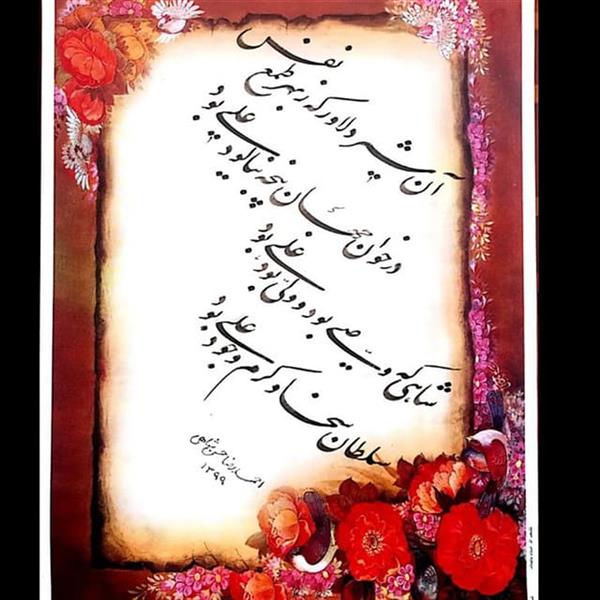 آن شیر دلاور که ز بهر طمع نفس
در خوان جهان پنجه نیالود علی بود
شاهی که وصی بود و ولی بود علی بود
سلطان سخا و کرم و جود علی بود
احمدرضا
۱۳۹۹